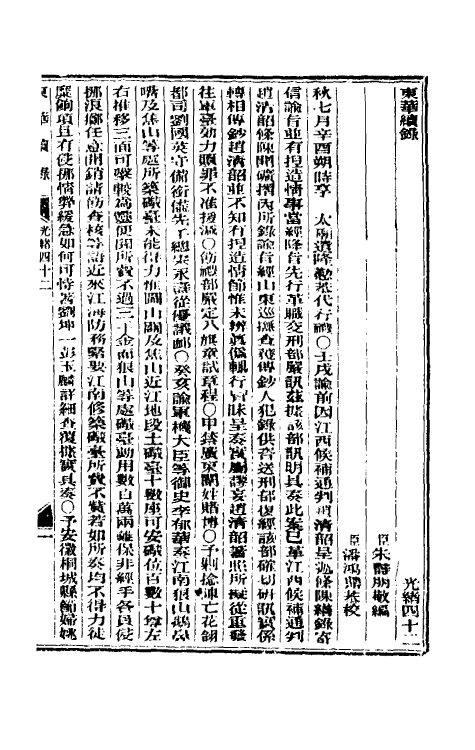 東華續錄
光緒四十二
臣朱壽朋敬編
臣潘鴻鼎恭校
秋七月辛酉朔時享 太廟遣隆懃恭代行禮〇壬戌諭前因江西候補通判趙清韶呈遞條陳繕錄寄
信諭旨並有捏造情事當經降旨先行革職交刑部嚴訊茲據該部訊明具奏此案已革江西候補通判
趙清韶條陳開礦摺內所錄諭旨經山東巡撫查覆傳鈔人犯錄供咨送刑部復經該部確切研訊實係
轉相傳鈔趙清韶並不知有捏造情節惟未辨眞僞輒行冒昧呈奏實屬謬妄趙清韶著照所擬從重發
往軍臺効力贖罪不准援減〇飭禮部嚴定八旗童試章程〇申禁廣東闈姓賭博〇予剿捻陣亡花翎
都司劉國英守備銜儘先千總宋永謀從優議卹〇癸亥諭軍機大臣等御史李郁華奏江南狼山鵝鼻
嘴及焦山等處所築礮臺未能得力惟圌山關及焦山近江地段土礮臺十數座可安礮位百數十尊左
右推移三面可擊較爲靈便闗所費不過三十金而狼山等處礮臺動用數百萬兩難保非經手各員從
挪浪擲任意開銷請飭查核等語近來江海防務緊要江南修築礮臺所費不貲若如所奏均不得力徒
糜餉項且有侵挪情弊緩急如何可恃著劉坤一彭玉麟詳細查覆據實具奏〇予安徽桐城縣節婦姚
東華續錄 光緒四十二 一